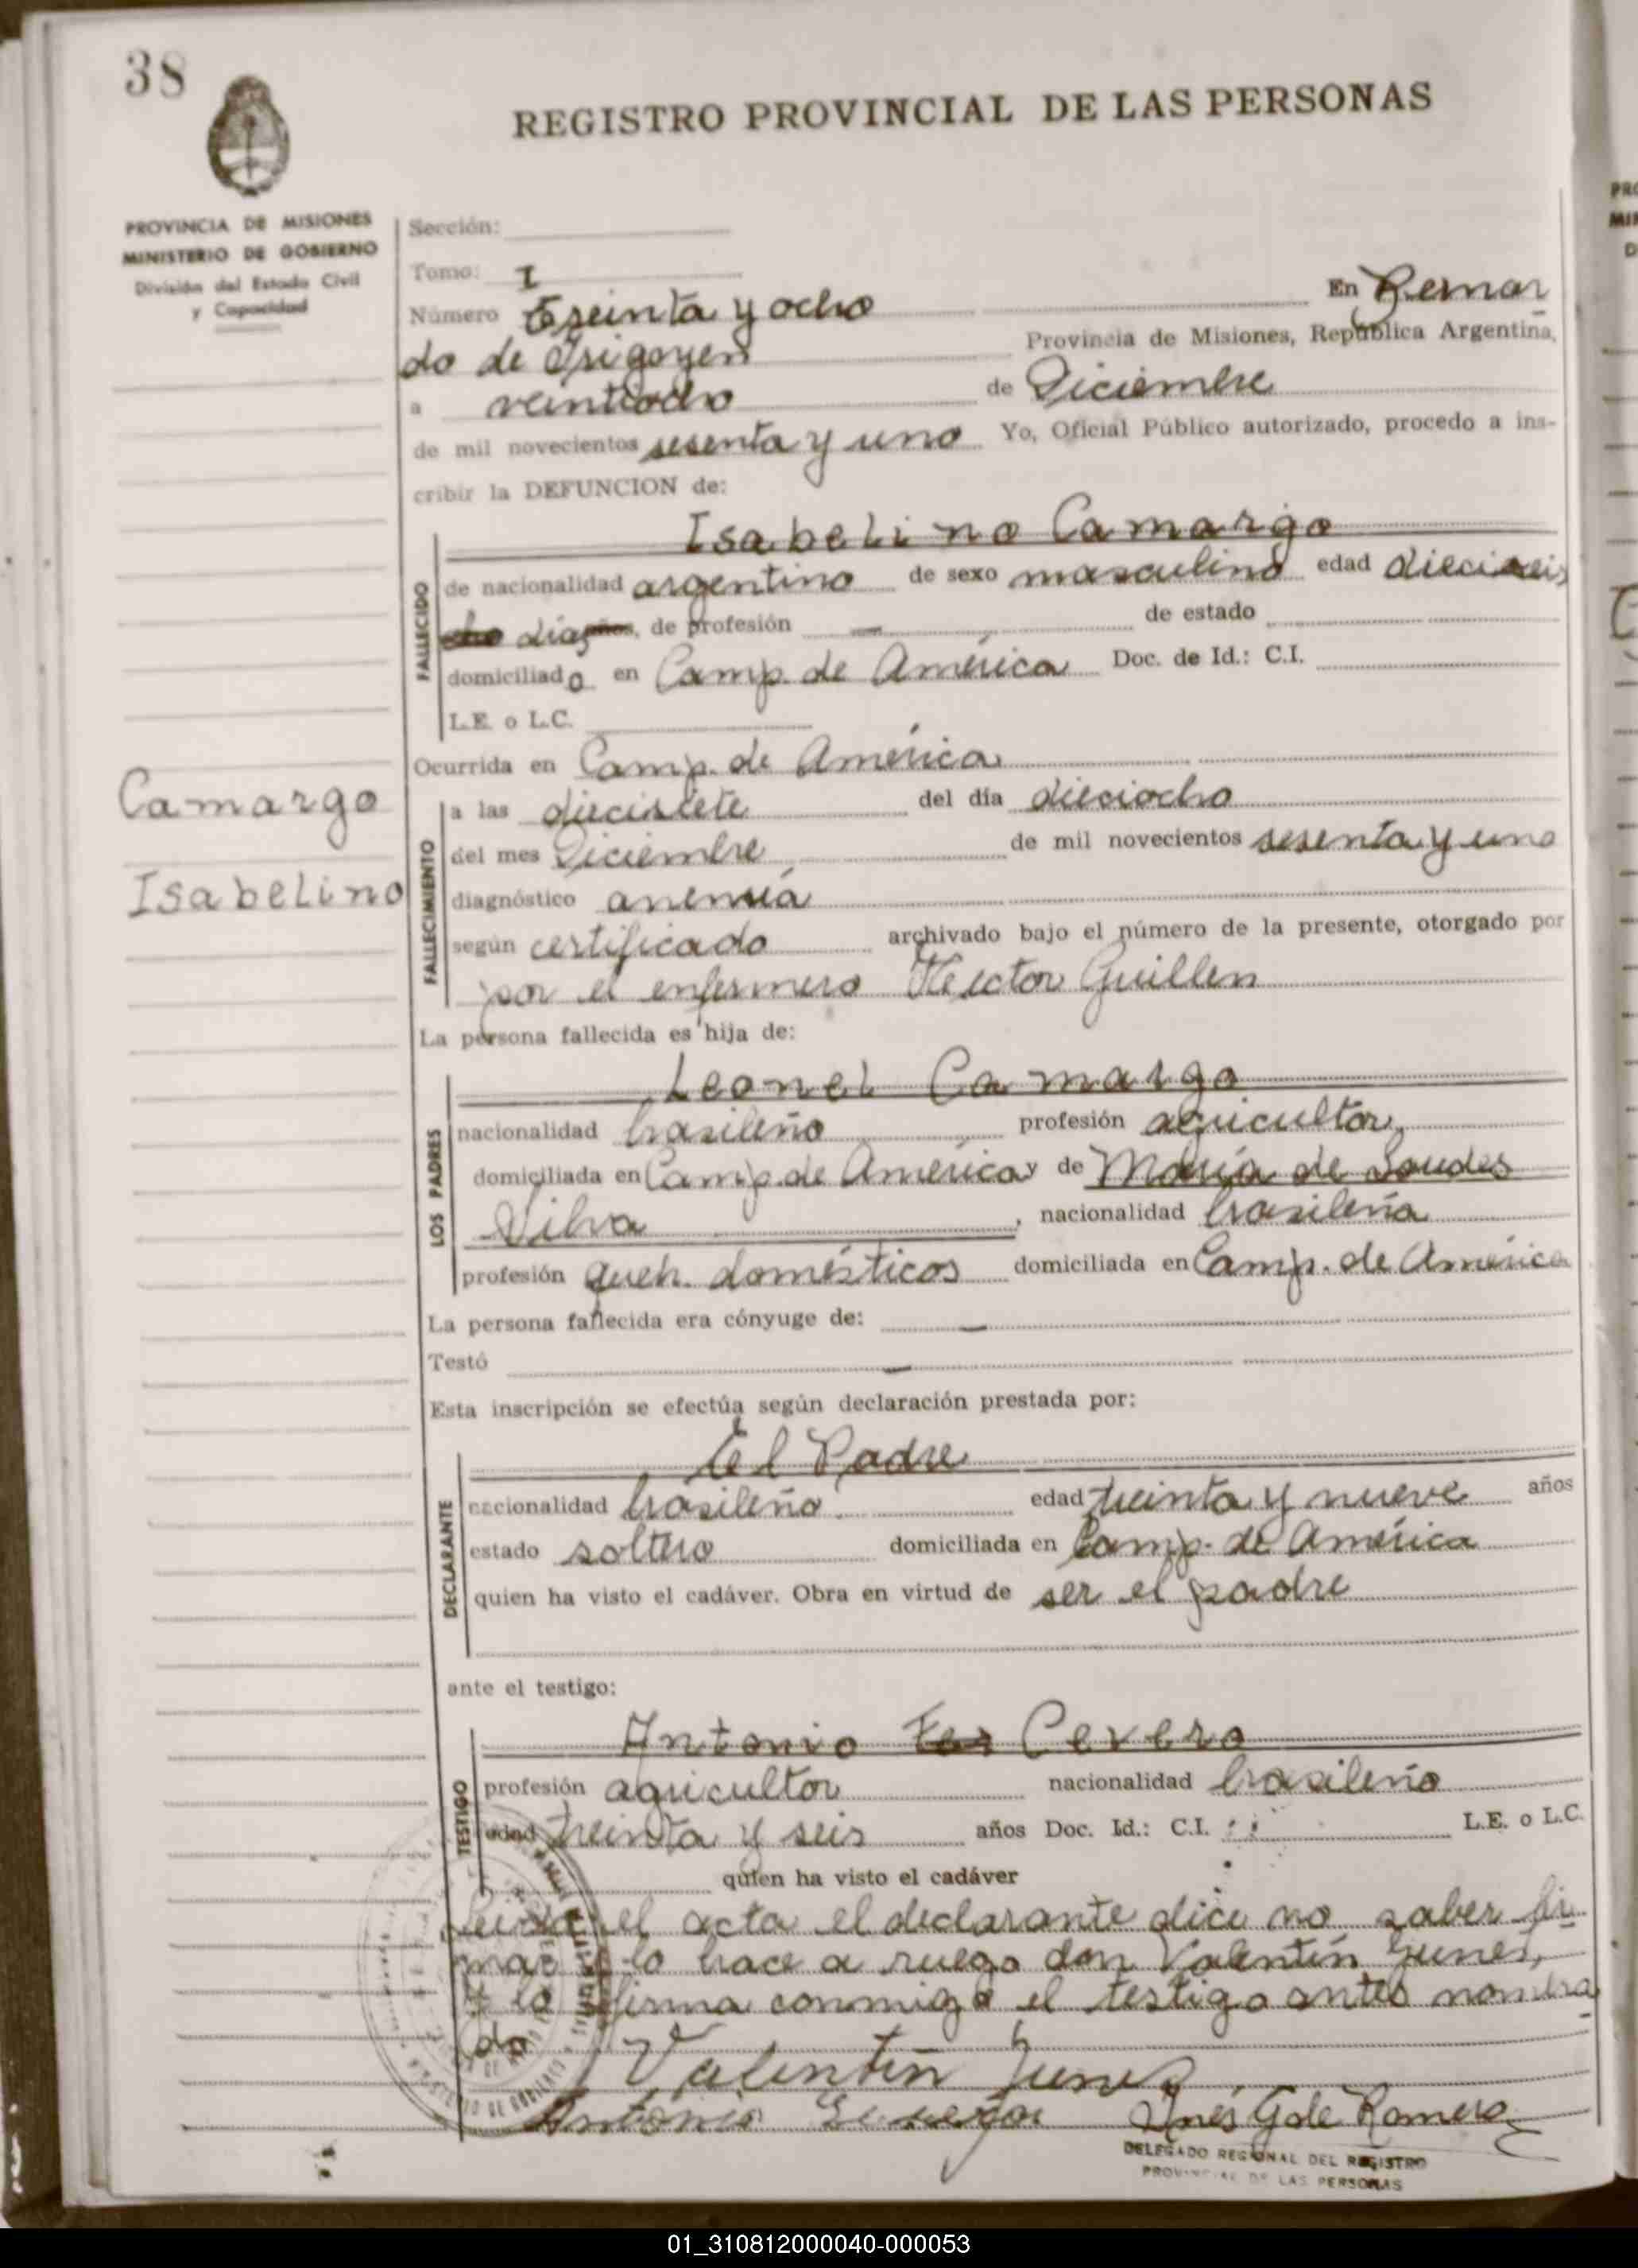 38
REGISTRO PROVINCIAL DE LAS PERSONAS
PROVINCIA DE MISIONES
MINISTERIO DE GOBIERNO
División del Estado Civil
y Capacidad
Sección:
Tomo: I
Número Treinta y ocho En Bernar
do de Irigoyen Provincia de Misiones, República Argentina,
a veintiocho de Diciembre
de mil novecientos sesenta y uno Yo, Oficial Público autorizado, procedo a ins-
cribir la DEFUNCION de:
Isabelino Camargo
FALLECIDO
de nacionalidad argentino de sexo masculino edad dieciseis
días años, de profesión — de estado
domiciliado en Camp. de América Doc. de Id.: C.I.
L.E. o L.C.
Ocurrida en Camp. de América
Camargo
Isabelino
FALLECIMIENTO
a las diecisiete del día dieciocho
del mes Diciembre de mil novecientos sesenta y uno
diagnóstico anemía
según certificado archivado bajo el número de la presente, otorgado por
por el enfermero Hector Guillen
La persona fallecida es hija de:
Leonel Camargo
LOS PADRES
nacionalidad brasileño profesión agricultor,
domiciliada en Camp. de América y de María de Loudes
Silva, nacionalidad brasileña
profesión queh. domésticos domiciliada en Camp. de América
La persona fallecida era cónyuge de: —
Testó —
Esta inscripción se efectúa según declaración prestada por:
El Padre
DECLARANTE
nacionalidad brasileño edad treinta y nueve años
estado soltero domiciliada en Camp. de América
quien ha visto el cadáver. Obra en virtud de ser el padre
ante el testigo:
Antonio Cevero
TESTIGO
profesión agricultor nacionalidad brasileño
edad treinta y seis años Doc. Id.: C.I. L.E. o L.C.
quien ha visto el cadáver
Leida el acta el declarante dice no saber fir
mar lo hace a ruego don Valentín Junes,
lo firma conmigo el testigo antes nombra
do
Valentin Junes
Antonio
Inés G de Romero
DELEGADO REGIONAL DEL REGISTRO
PROVINCIAL DE LAS PERSONAS
01_310812000040-000053